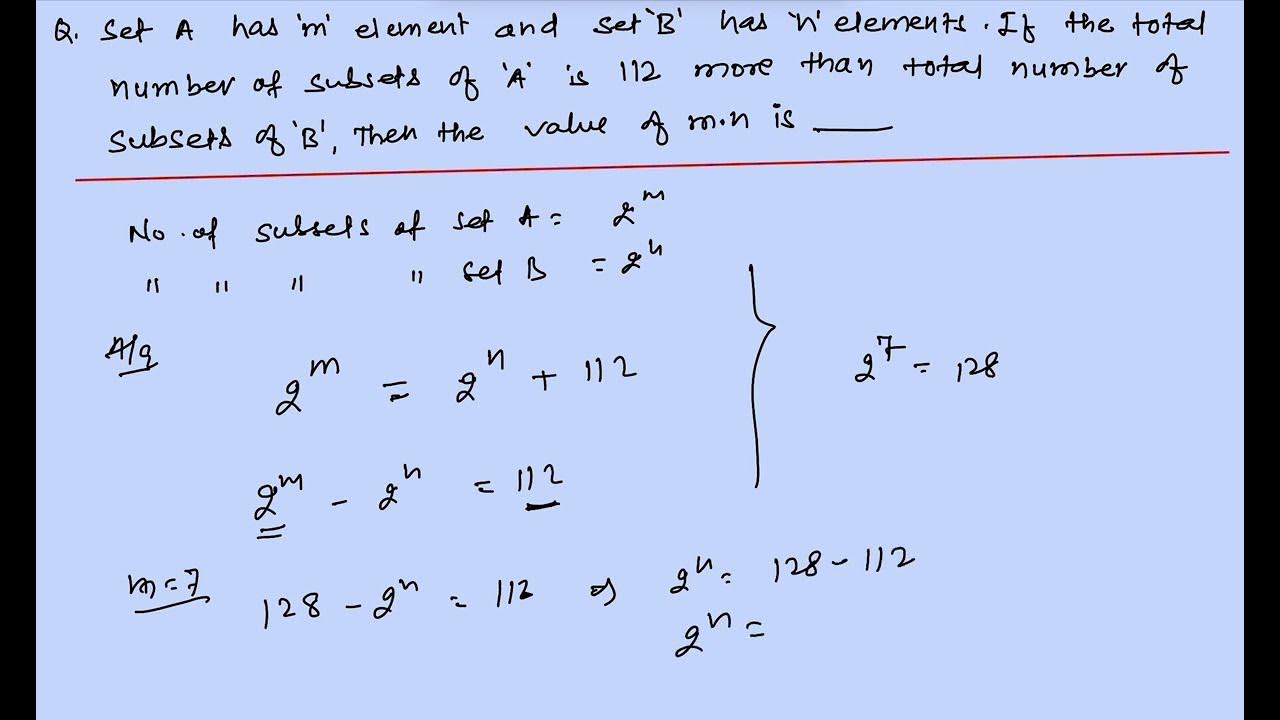 Q. Set A has 'm' element and set 'B' has 'n' elements. If the total
number of subsets of 'A' is 112 more than total number of
subsets of 'B', Then the value of m.n is ____
No. of subsets of set A = 2^m
" " " " set B = 2^n
A/q
2^m = 2^n + 112
2^7 = 128
2^m - 2^n = 112
m=7
128 - 2^n = 112 ⇒ 2^n = 128 - 112
2^n =